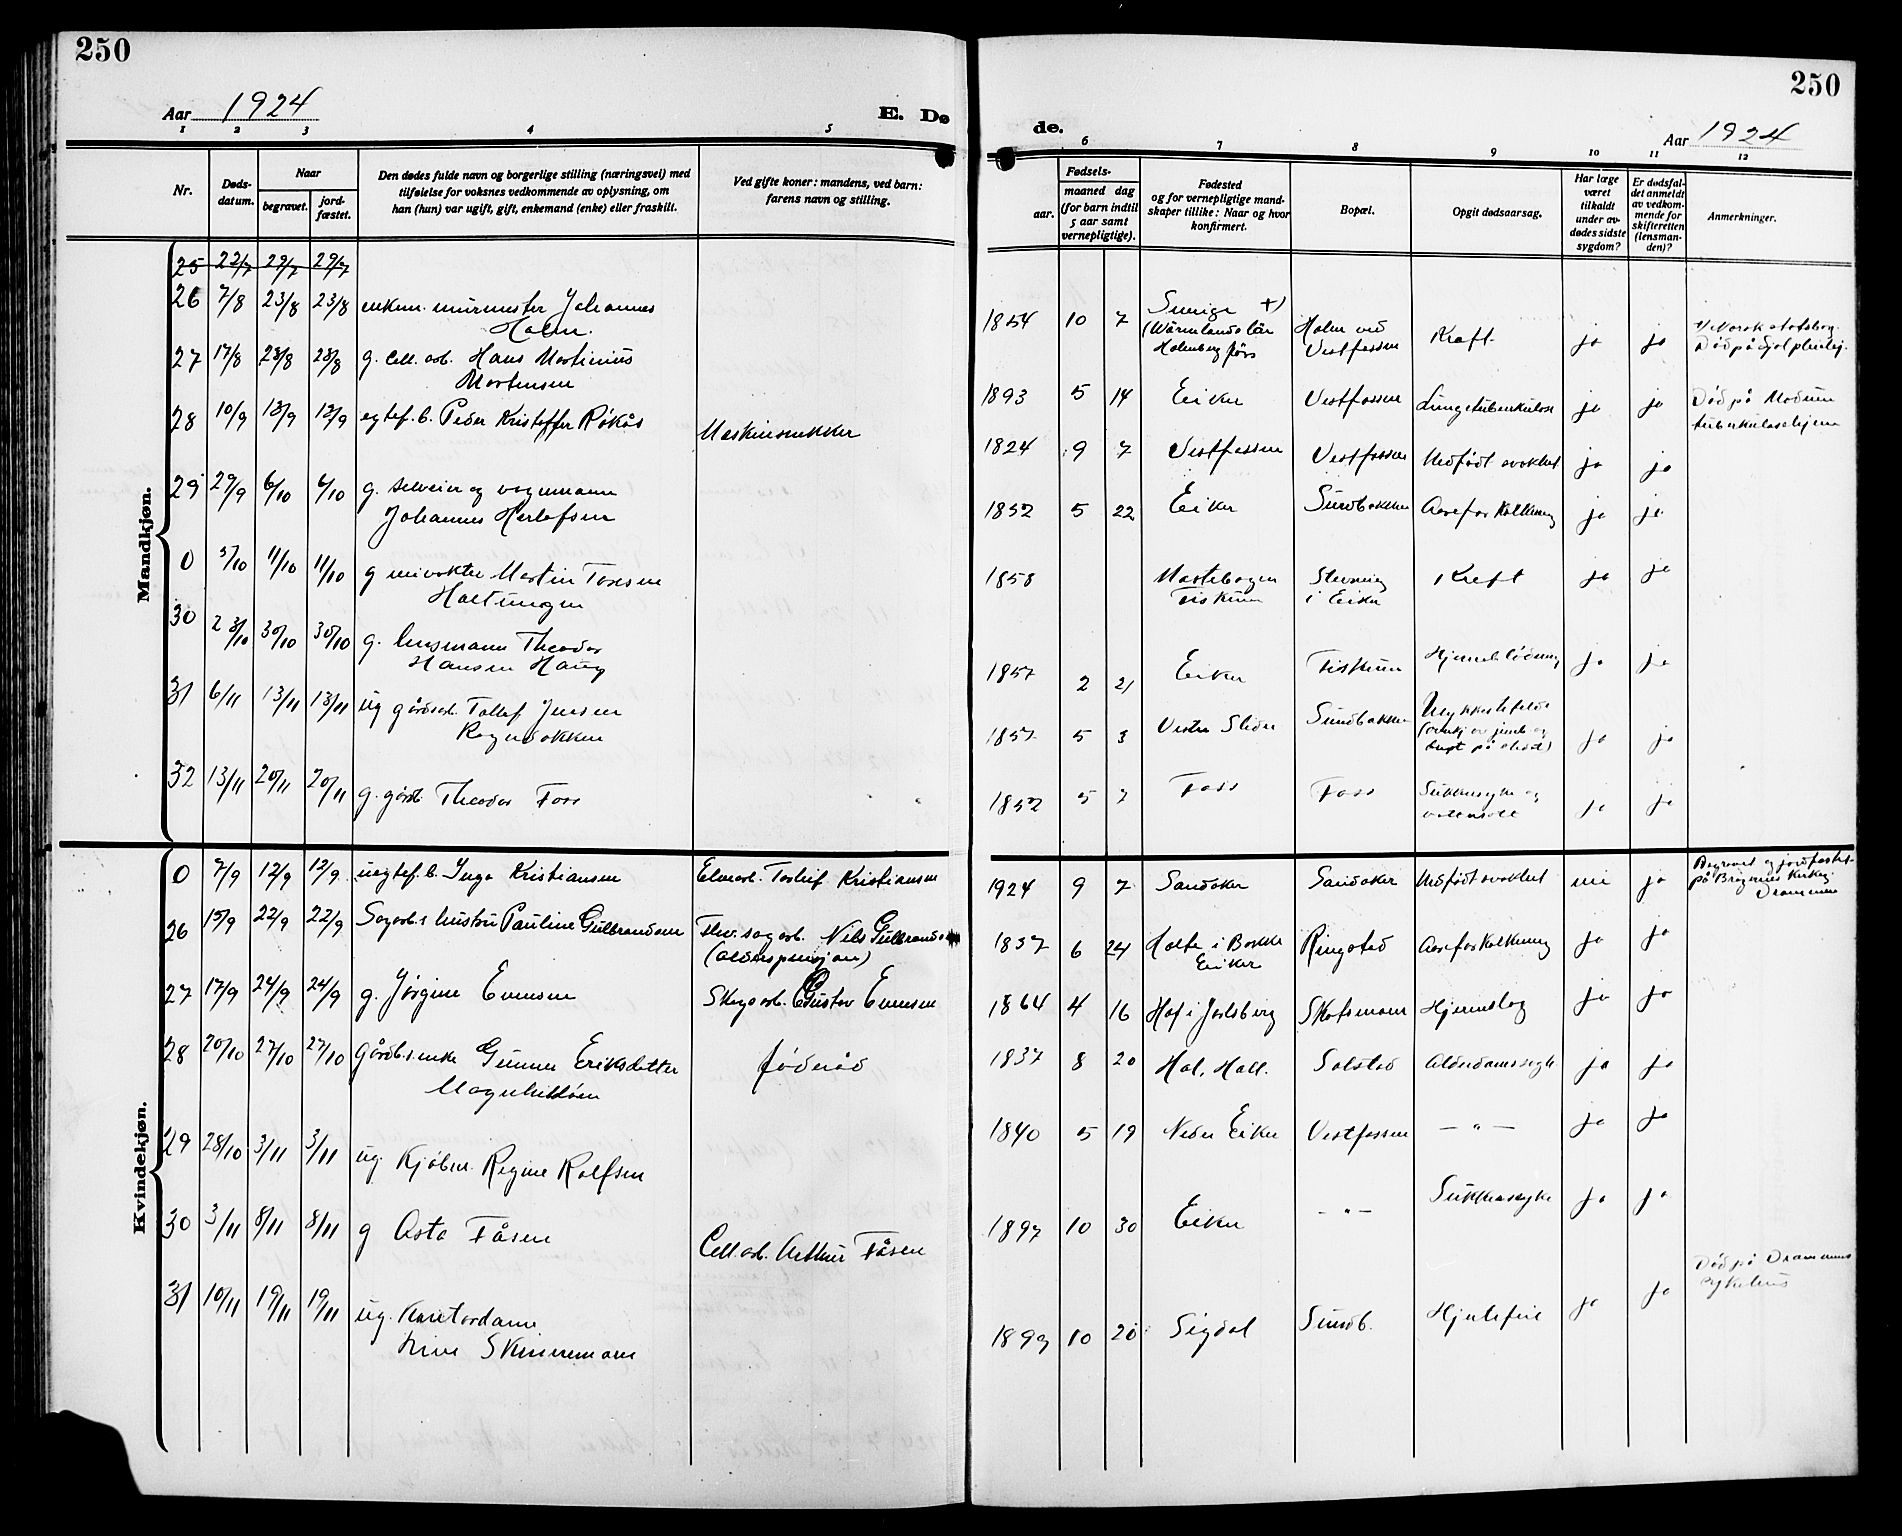 250
Aar 1924
E. Dø
1 2 3 4 5
Nr.
Døds-
datum.
Naar
begravet.
jord-
fæstet.
Den dødes fulde navn og borgerlige stilling (næringsvei) med
tilføielse for voksnes vedkommende av oplysning, om
han (hun) var ugift, gift, enkemand (enke) eller fraskilt.
Ved gifte koner: mandens, ved barn:
farens navn og stilling.
Mandkjøn.
25 22/7 29/7 29/7
26 7/8 23/8 23/8 enkem. murmester Johannes
Holm.
27 17/8 28/8 28/8 g. Cell. arb. Hans Martinius
Mortensen
28 10/9 13/9 13/9 egtef. b. Peder Kristoffer Røkås Maskinsnekker
29 29/9 6/10 6/10 g. selveier og vognmann
Johannes Herlofsen
0 5/10 11/10 11/10 g Martin
30 28/10 30/10 30/10 g. lensmann Theodor
Hansen Haug
31 6/11 13/11 13/11 ug gårdarb. Tollef Jensen
32 13/11 20/11 20/11 g. gårdb. Theodor Foss
Kvindekjøn.
0 7/9 12/9 12/9 uegtef. b. Inga Kristiansen Kristiansen
26 15/9 22/9 22/9 Sagarb.s hustru Pauline Gulbrandsen Nils
(alderspensjon)
27 17/9 24/9 24/9 g. Jørgine Evensen Skogarb. Gustav Evensen
28 20/10 27/10 27/10 Gårdb.s enke Gunner Eriksdatter føderåd
29 28/10 3/11 3/11 ug. Kjøbm. Regine Rolfsen
30 3/11 8/11 8/11 g Asta Fåsen Cell. arb. Arthur Fåsen
31 10/11 19/11 19/11 ug. Kontordame
250
de.
Aar 1924
6 7 8 9 10 11 12
Fødsels-
aar.
maaned dag
(for barn indtil
5 aar samt
vernepligtige).
Fødested
og for vernepligtige mand-
skaper tillike: Naar og hvor
konfirmert.
Bopæl.
Opgit dødsaarsag.
Har læge
været
tilkaldt
under av-
dødes sidste
sygdom?
Er dødsfal-
det anmeldt
av vedkom-
mende for
skifteretten
(lensman-
den)?
Anmerkninger.
1854 10 7 Sverige +) Holm ved Kræft ja ja
Vestfossen
1893 5 14 Eiker Vestfossen Lungetuberkulose ja ja Død på Modum
tuberkulosehjem
1924 9 7 Vestfossen Vestfossen Medfødt svakhet ja ja
1852 5 22 Eiker Sundbakken Aareforkalkning ja ja
1858 Kreft ja ja
Fiskum i Eiker
1857 2 21 Eiker Fiskum Hjerneblødning ja ja
1857 5 3 Vestre Slidre Sundbakken Ulykkestilfelde ja ja
1852 5 7 Foss Foss Sukkersyke og ja ja
1924 9 7 Sandaker Sandaker Medfødt svakhet nei ja Begravet og jordfæstet
på Bragernes kirkeg.
Drammen
1837 6 24 Ringstad Aareforkalkning ja ja
Eiker
1864 4 16 Hof i Jarlsberg Hjerneslag ja ja
1837 8 20 Hol, Hall. Solstad ja ja
1840 5 19 Nedre Eiker Vestfossen — " — ja ja
1897 10 30 Eiker — " — Sukkersyke ja ja
1899 10 20 Sigdal Sundb. Hjertefeil ja ja Død på Drammens
sykehus